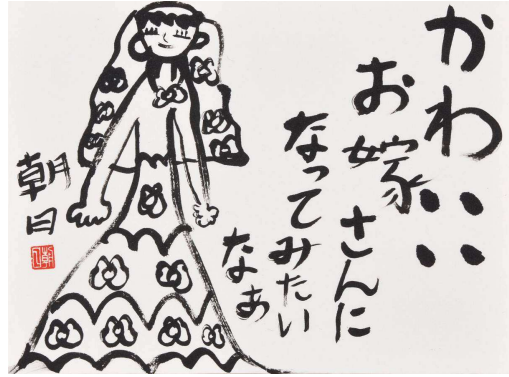 かわいい
お嫁さんに
なってみたい
なあ
朝日